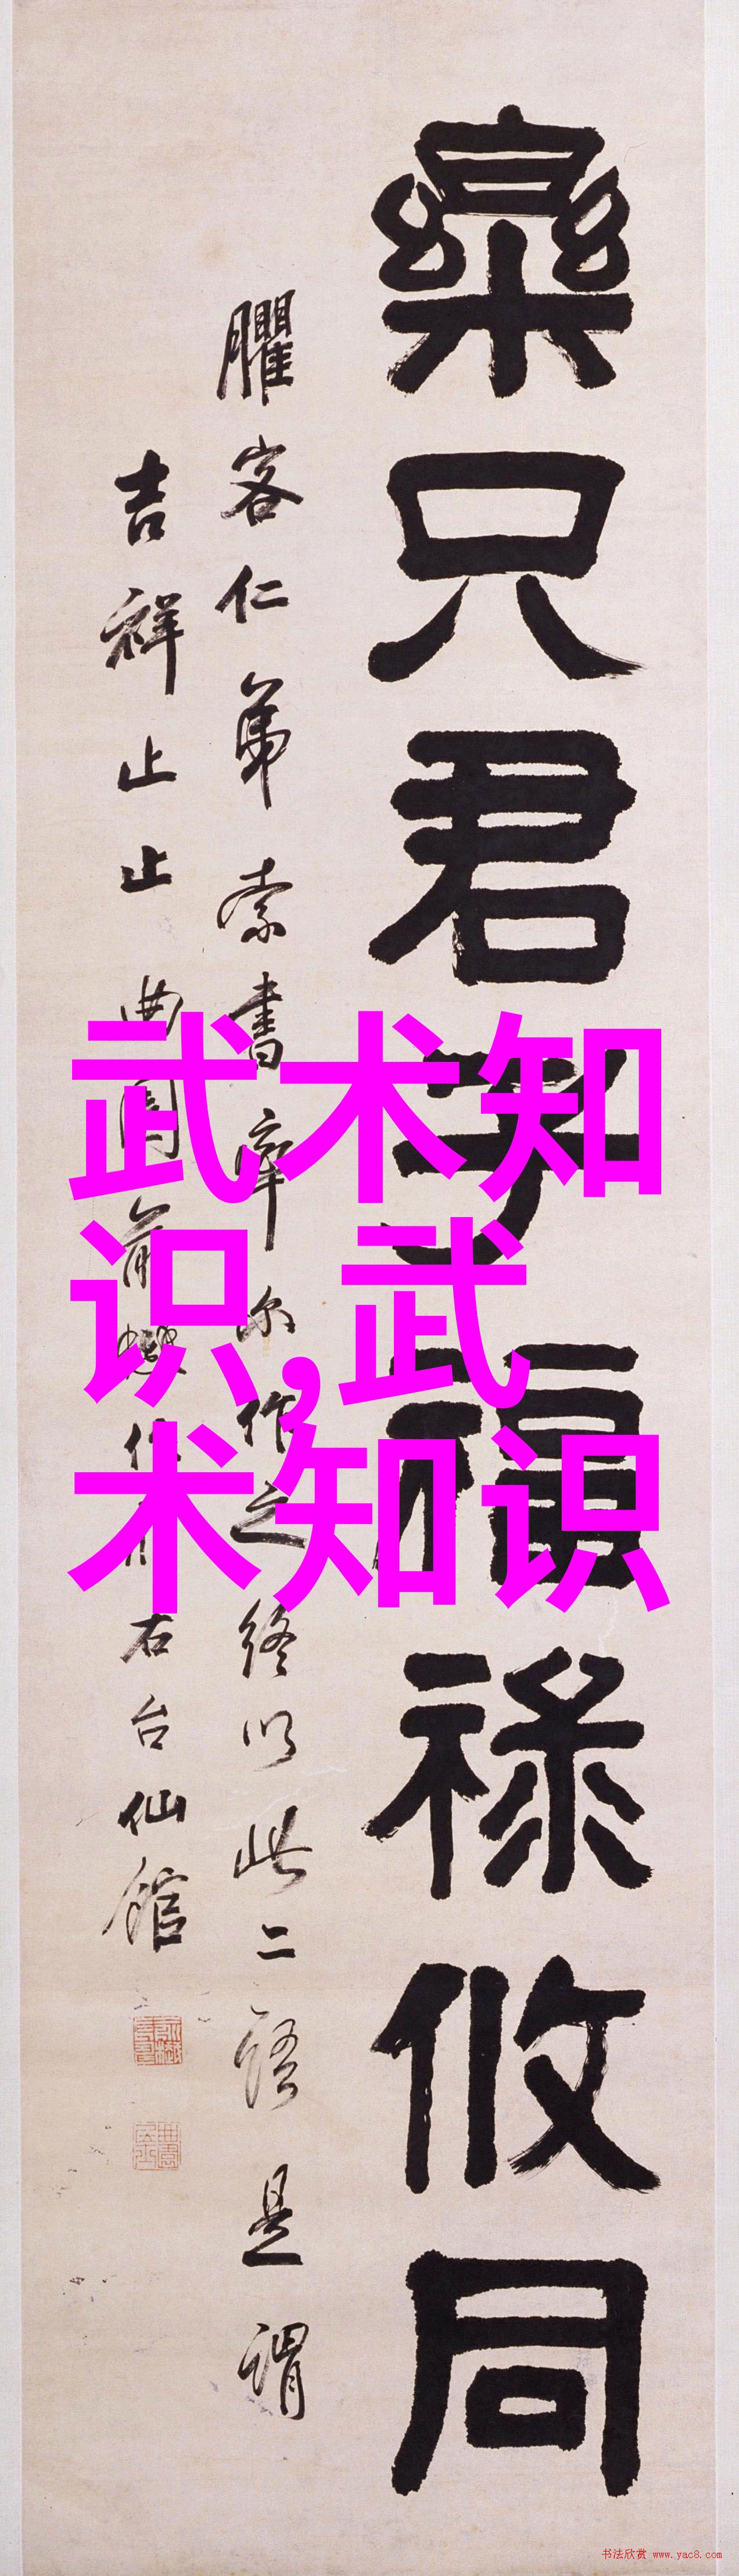 樂只君子福祿攸同
臞客仁弟索書率尔作之終以此二語是謂
吉祥止止曲園俞樾
右台仙館
武术知
识,武
术知识
书法欣赏 www.yac8.com